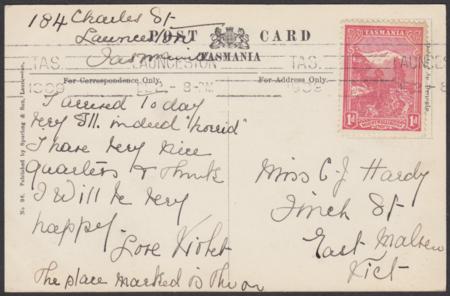 184 Charles St
Launceston
Tasmania
POST CARD
TASMANIA
TAS.
LAUNCESTON
TAS.
LAUNCESTON
For Correspondence Only.
For Address Only.
I arrived To day
very Ill. indeed "horrid"
I have very nice
Quarters & think
I Will be very
happy.
Love Violet
The place marked is the on
Miss C. J. Hardy
Finch St
East Malvern
Vict
TASMANIA
1d 1d
No 98. Published by Spurling & Son, Launceston.